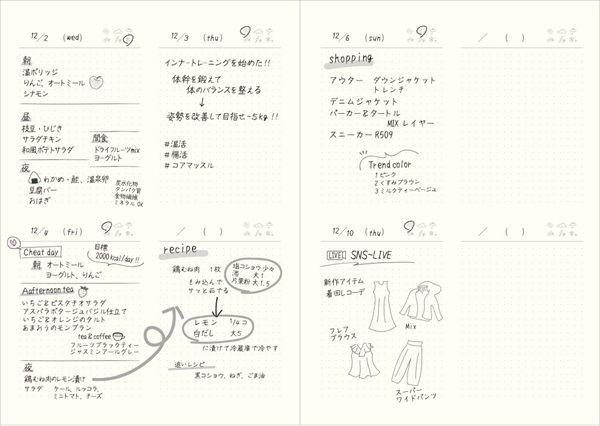 12/2 (wed)
朝
温ポリッジ
りんご、オートミール
シナモン
昼
枝豆・ひじき
サラダチキン
和風ポテトサラダ
間食
ドライフルーツmix
ヨーグルト
夜
わかめ・鮭、温泉卵
豆腐バー
おはぎ
炭水化物
タンパク質
食物繊維
ミネラル OK
12/3 (thu)
インナートレーニングを始めた!!
体幹を鍛えて
体のバランスを整える
↓
姿勢を改善して目指せ-5kg!!
#温活
#腸活
#コアマッスル
12/4 (fri)
Cheat day
目標
2000kcal/day!!
朝 オートミール
ヨーグルト、りんご
Aafternoon tea
いちご&ピスタチオサラダ
アスパラポタージュバジル仕立て
いちご&オレンジのタルト
あまおうのモンブラン
tea&coffee
フルーツブラックティー
ジャスミンアールグレー
夜
鶏むね肉のレモン漬け
サラダ ケール、ルッコラ、
ミニトマト、チーズ
/ ( )
recipe
鶏むね肉 1枚
塩コショウ 少々
酒 大1
片栗粉 大1.5
もみ込んで
サッと茹でる
レモン 1/4コ
白だし 大5
に漬けて冷蔵庫で冷やす
追いレシピ
黒コショウ、ねぎ、ごま油
12/6 (sun)
shopping
アウター ダウンジャケット
トレンチ
デニムジャケット
パーカー&タートル
MIXレイヤー
スニーカー R509
Trend color
1 ピンク
2 くすみブラウン
3 ミルクティーベージュ
/ ( )
12/10 (thu)
LIVE! SNS-LIVE
新作アイテム
着回しコーデ
Mix
フレア
ブラウス
スーパー
ワイドパンツ